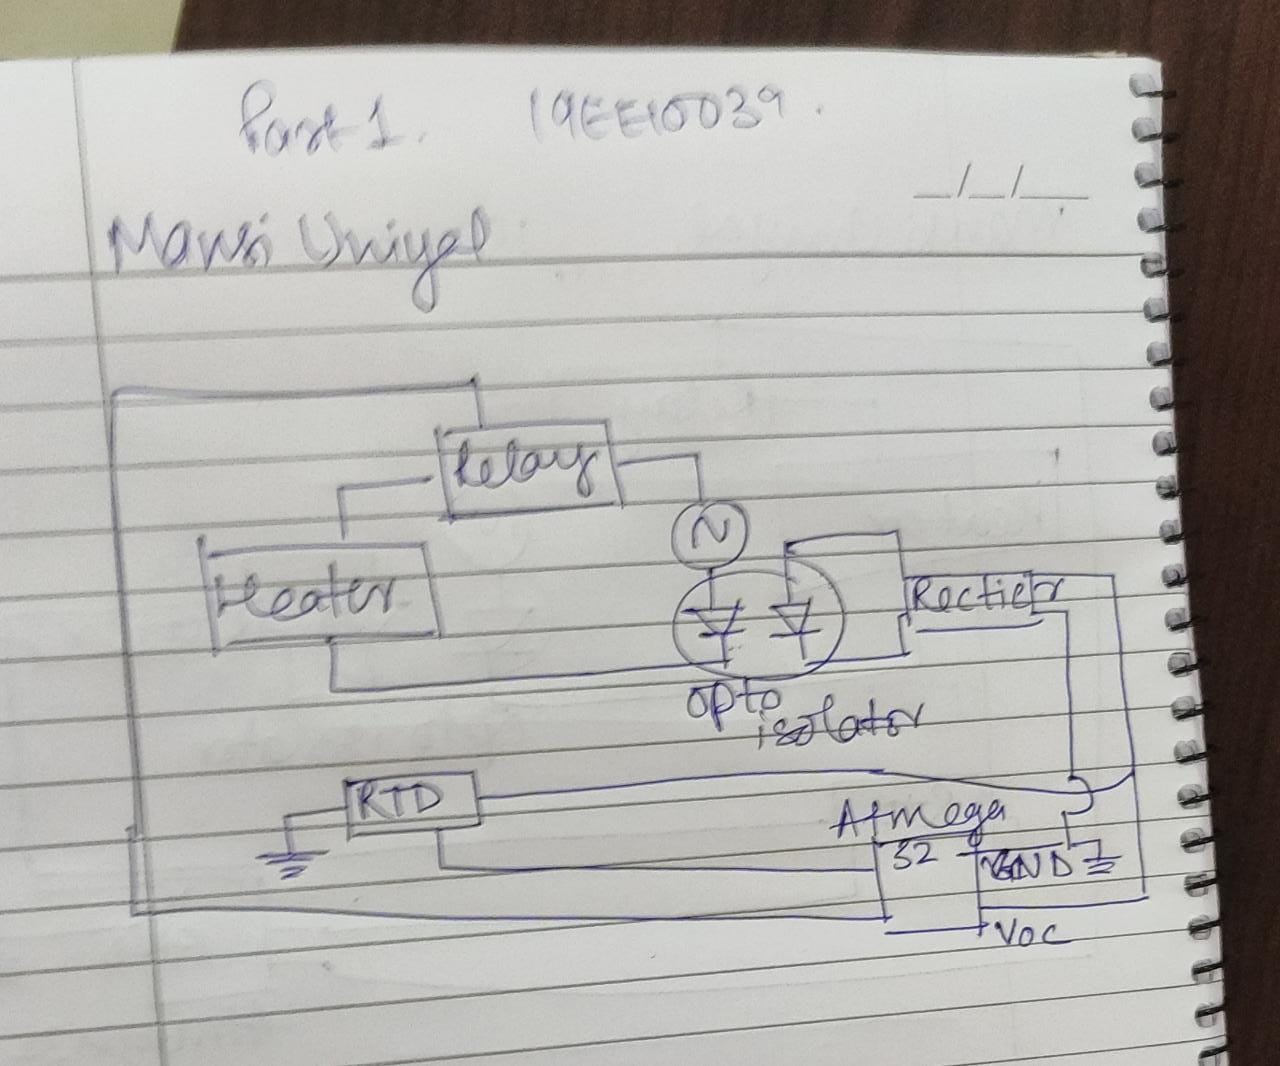 Part 1. 19EE10039.
_/_/_
Mansi Uniyal
Relay
Heater
Rectier
opto
isolator
RTD
Atmega
32 GND
Vcc